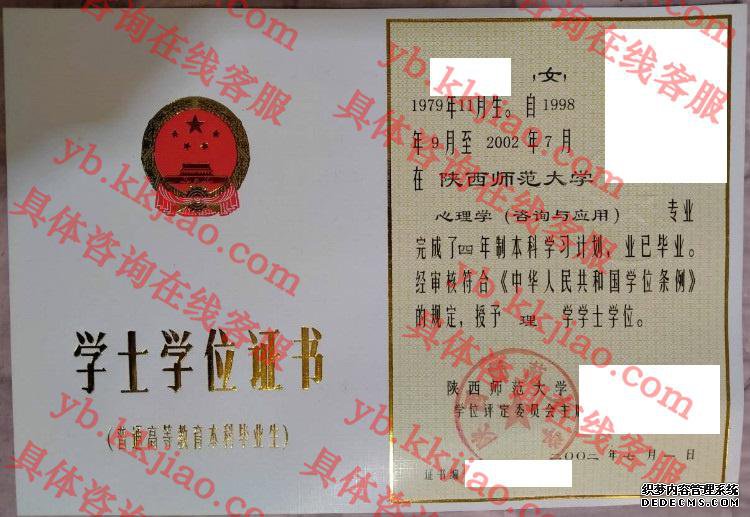 学士学位证书
(普通高等教育本科毕业生)
,女,
1979年11月生。自1998
年9月至 2002年7月
在 陕西师范大学
心理学（咨询与应用） 专业
完成了四年制本科学习计划，业已毕业。
经审核符合《中华人民共和国学位条例》
的规定，授予 理 学学士学位。
陕西师范大学
学位评定委员会主
二〇〇二年七月一日
证书编
具体咨询在线客服
yb.kkjiao.com
具体咨询在线客服
yb.kkjiao.com
具体咨询在线客服
yb.kkjiao.com
织梦内容管理系统
DEDECMS.COM